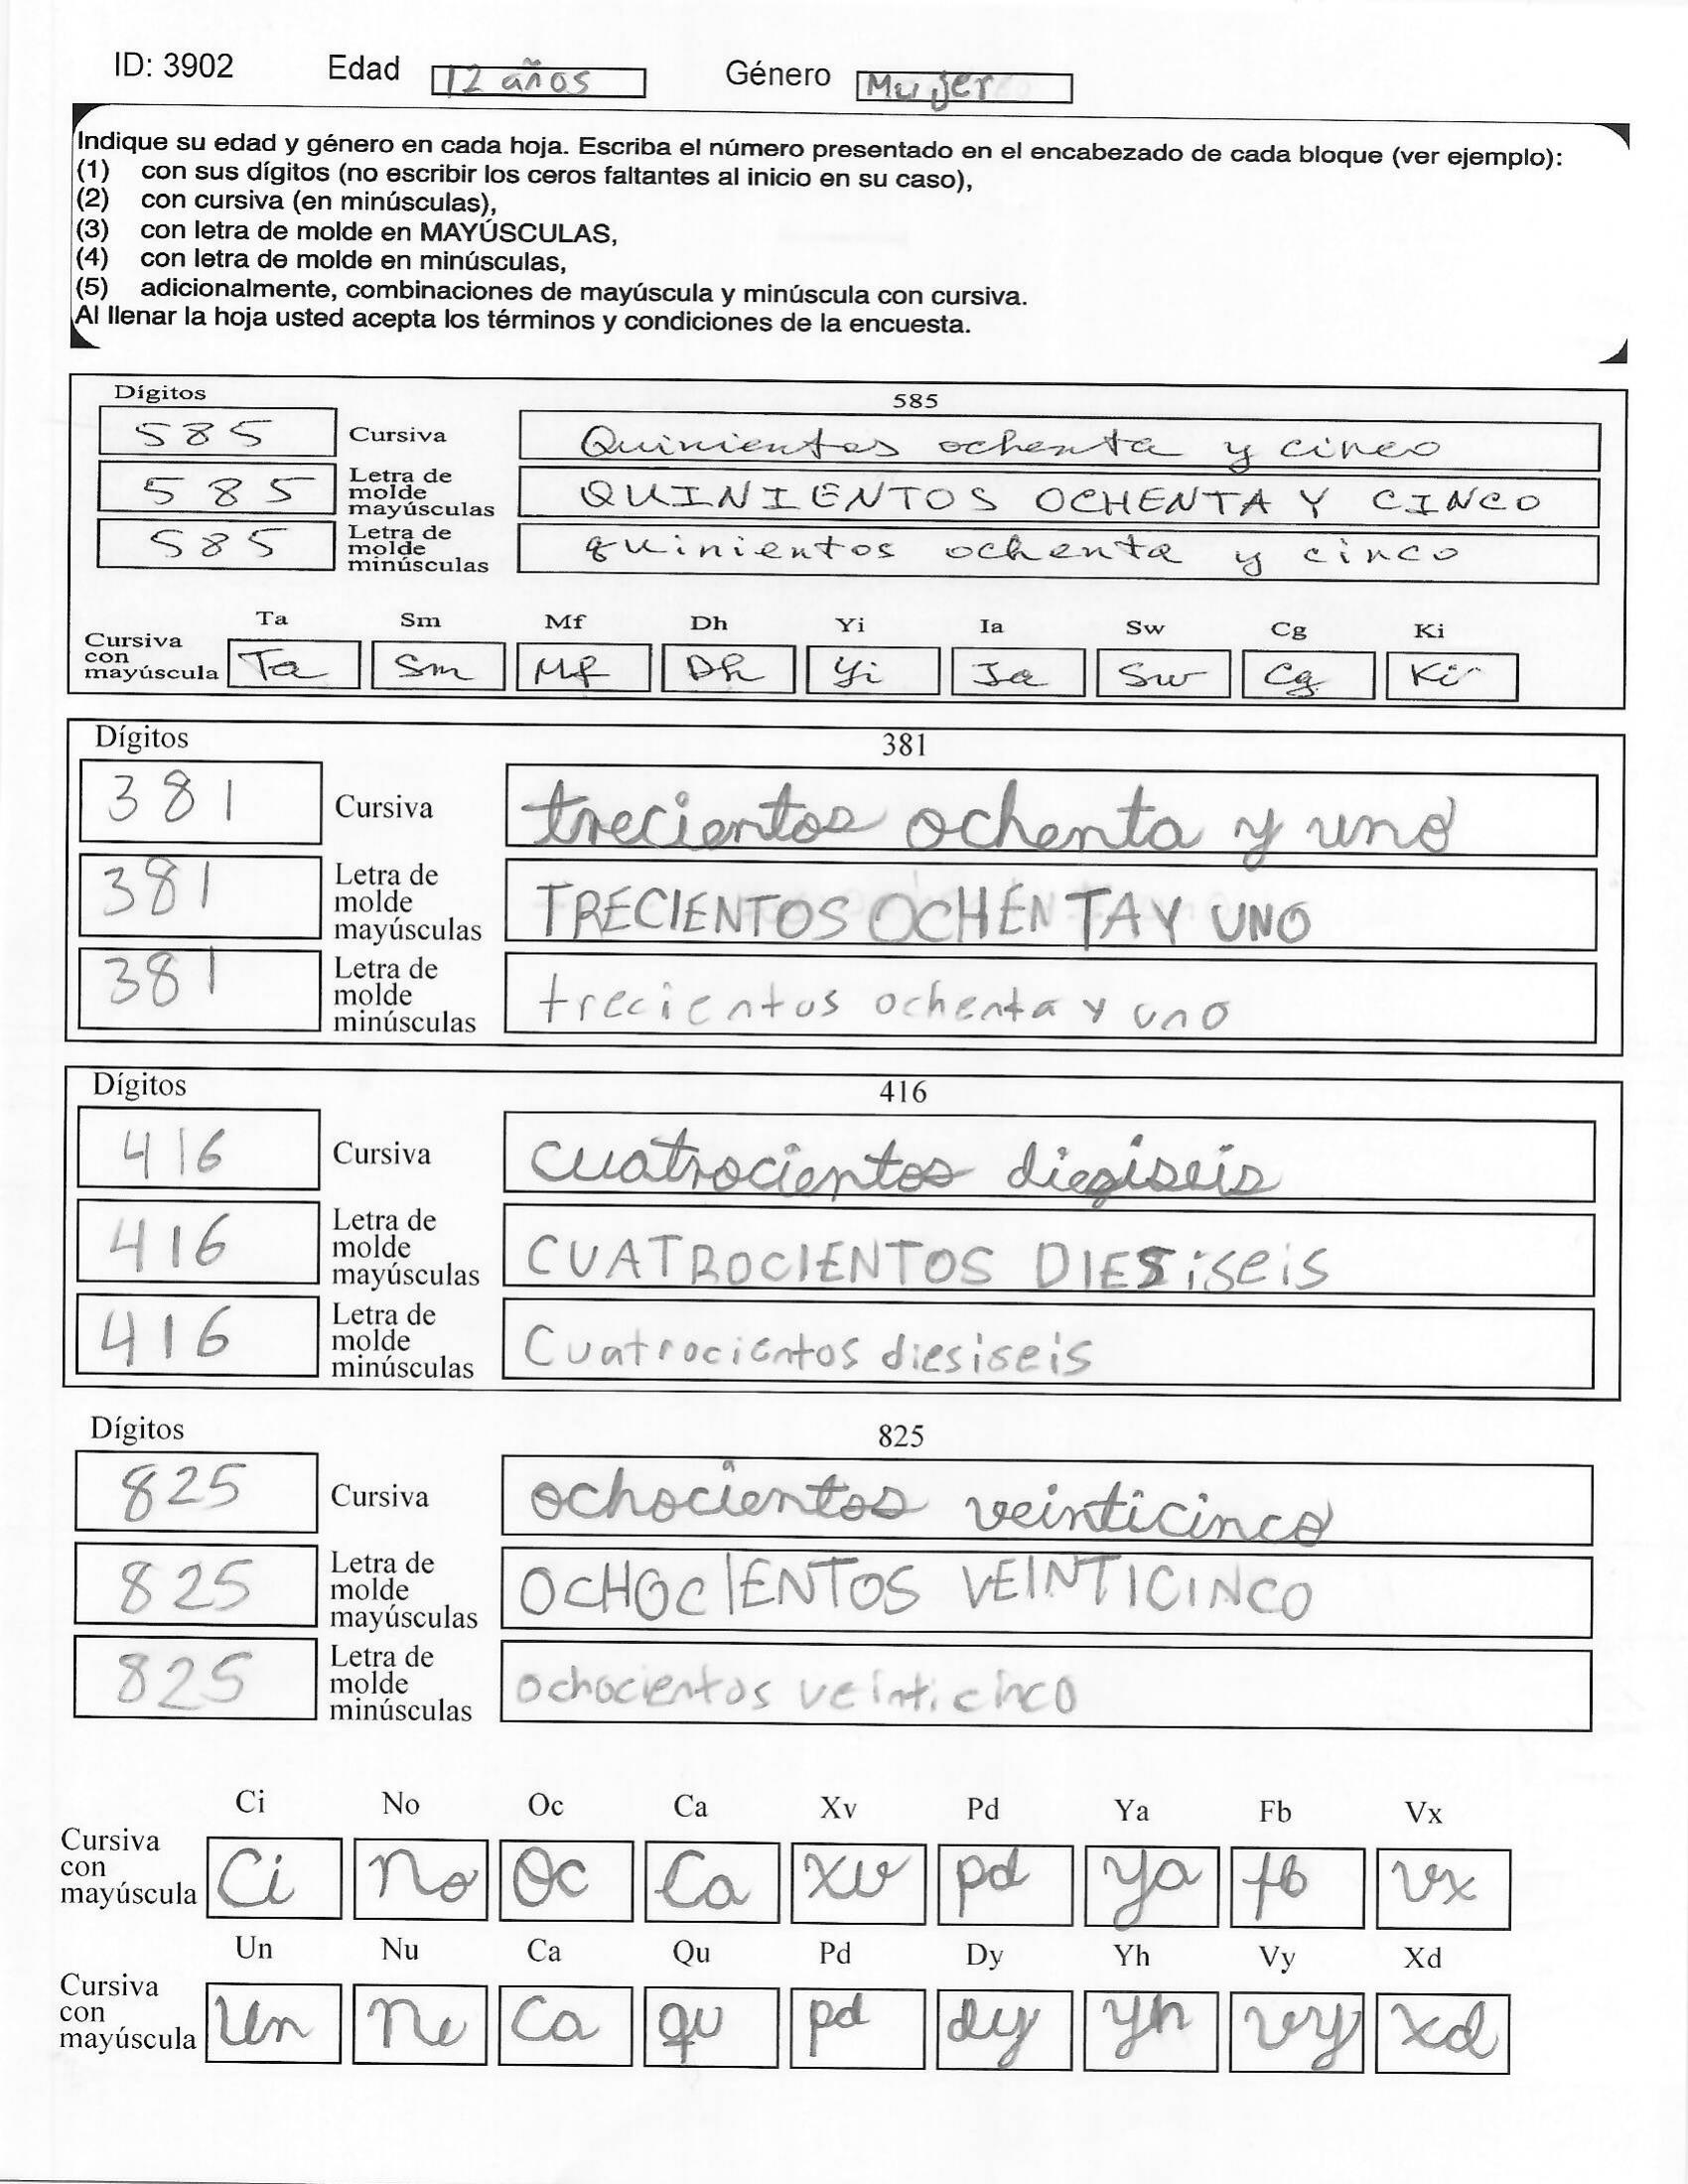 ID: 3902 Edad 12 años Género Mujer
Indique su edad y género en cada hoja. Escriba el número presentado en el encabezado de cada bloque (ver ejemplo):
(1) con sus dígitos (no escribir los ceros faltantes al inicio en su caso),
(2) con cursiva (en minúsculas),
(3) con letra de molde en MAYÚSCULAS,
(4) con letra de molde en minúsculas,
(5) adicionalmente, combinaciones de mayúscula y minúscula con cursiva.
Al llenar la hoja usted acepta los términos y condiciones de la encuesta.
Dígitos 585
585 Cursiva Quinientos ochenta y cinco
585 Letra de molde mayúsculas QUINIENTOS OCHENTA Y CINCO
585 Letra de molde minúsculas quinientos ochenta y cinco
Ta Sm Mf Dh Yi Ia Sw Cg Ki
Cursiva con mayúscula Ta Sm Mf Dh Yi Ia Sw Cg Ki
Dígitos 381
381 Cursiva trecientos ochenta y uno
381 Letra de molde mayúsculas TRECIENTOS OCHENTA Y UNO
381 Letra de molde minúsculas trecientos ochenta y uno
Dígitos 416
416 Cursiva cuatrocientos diegiseis
416 Letra de molde mayúsculas CUATROCIENTOS DIESiSeiS
416 Letra de molde minúsculas Cuatrocientos diesiseis
Dígitos 825
825 Cursiva ochocientos veinticinco
825 Letra de molde mayúsculas OCHOCIENTOS VEINTICINCO
825 Letra de molde minúsculas ochocientos veinticinco
Ci No Oc Ca Xv Pd Ya Fb Vx
Cursiva con mayúscula Ci No Oc Ca xv pd ya fb vx
Un Nu Ca Qu Pd Dy Yh Vy Xd
Cursiva con mayúscula Un Nu Ca qu pd dy yh vy xd